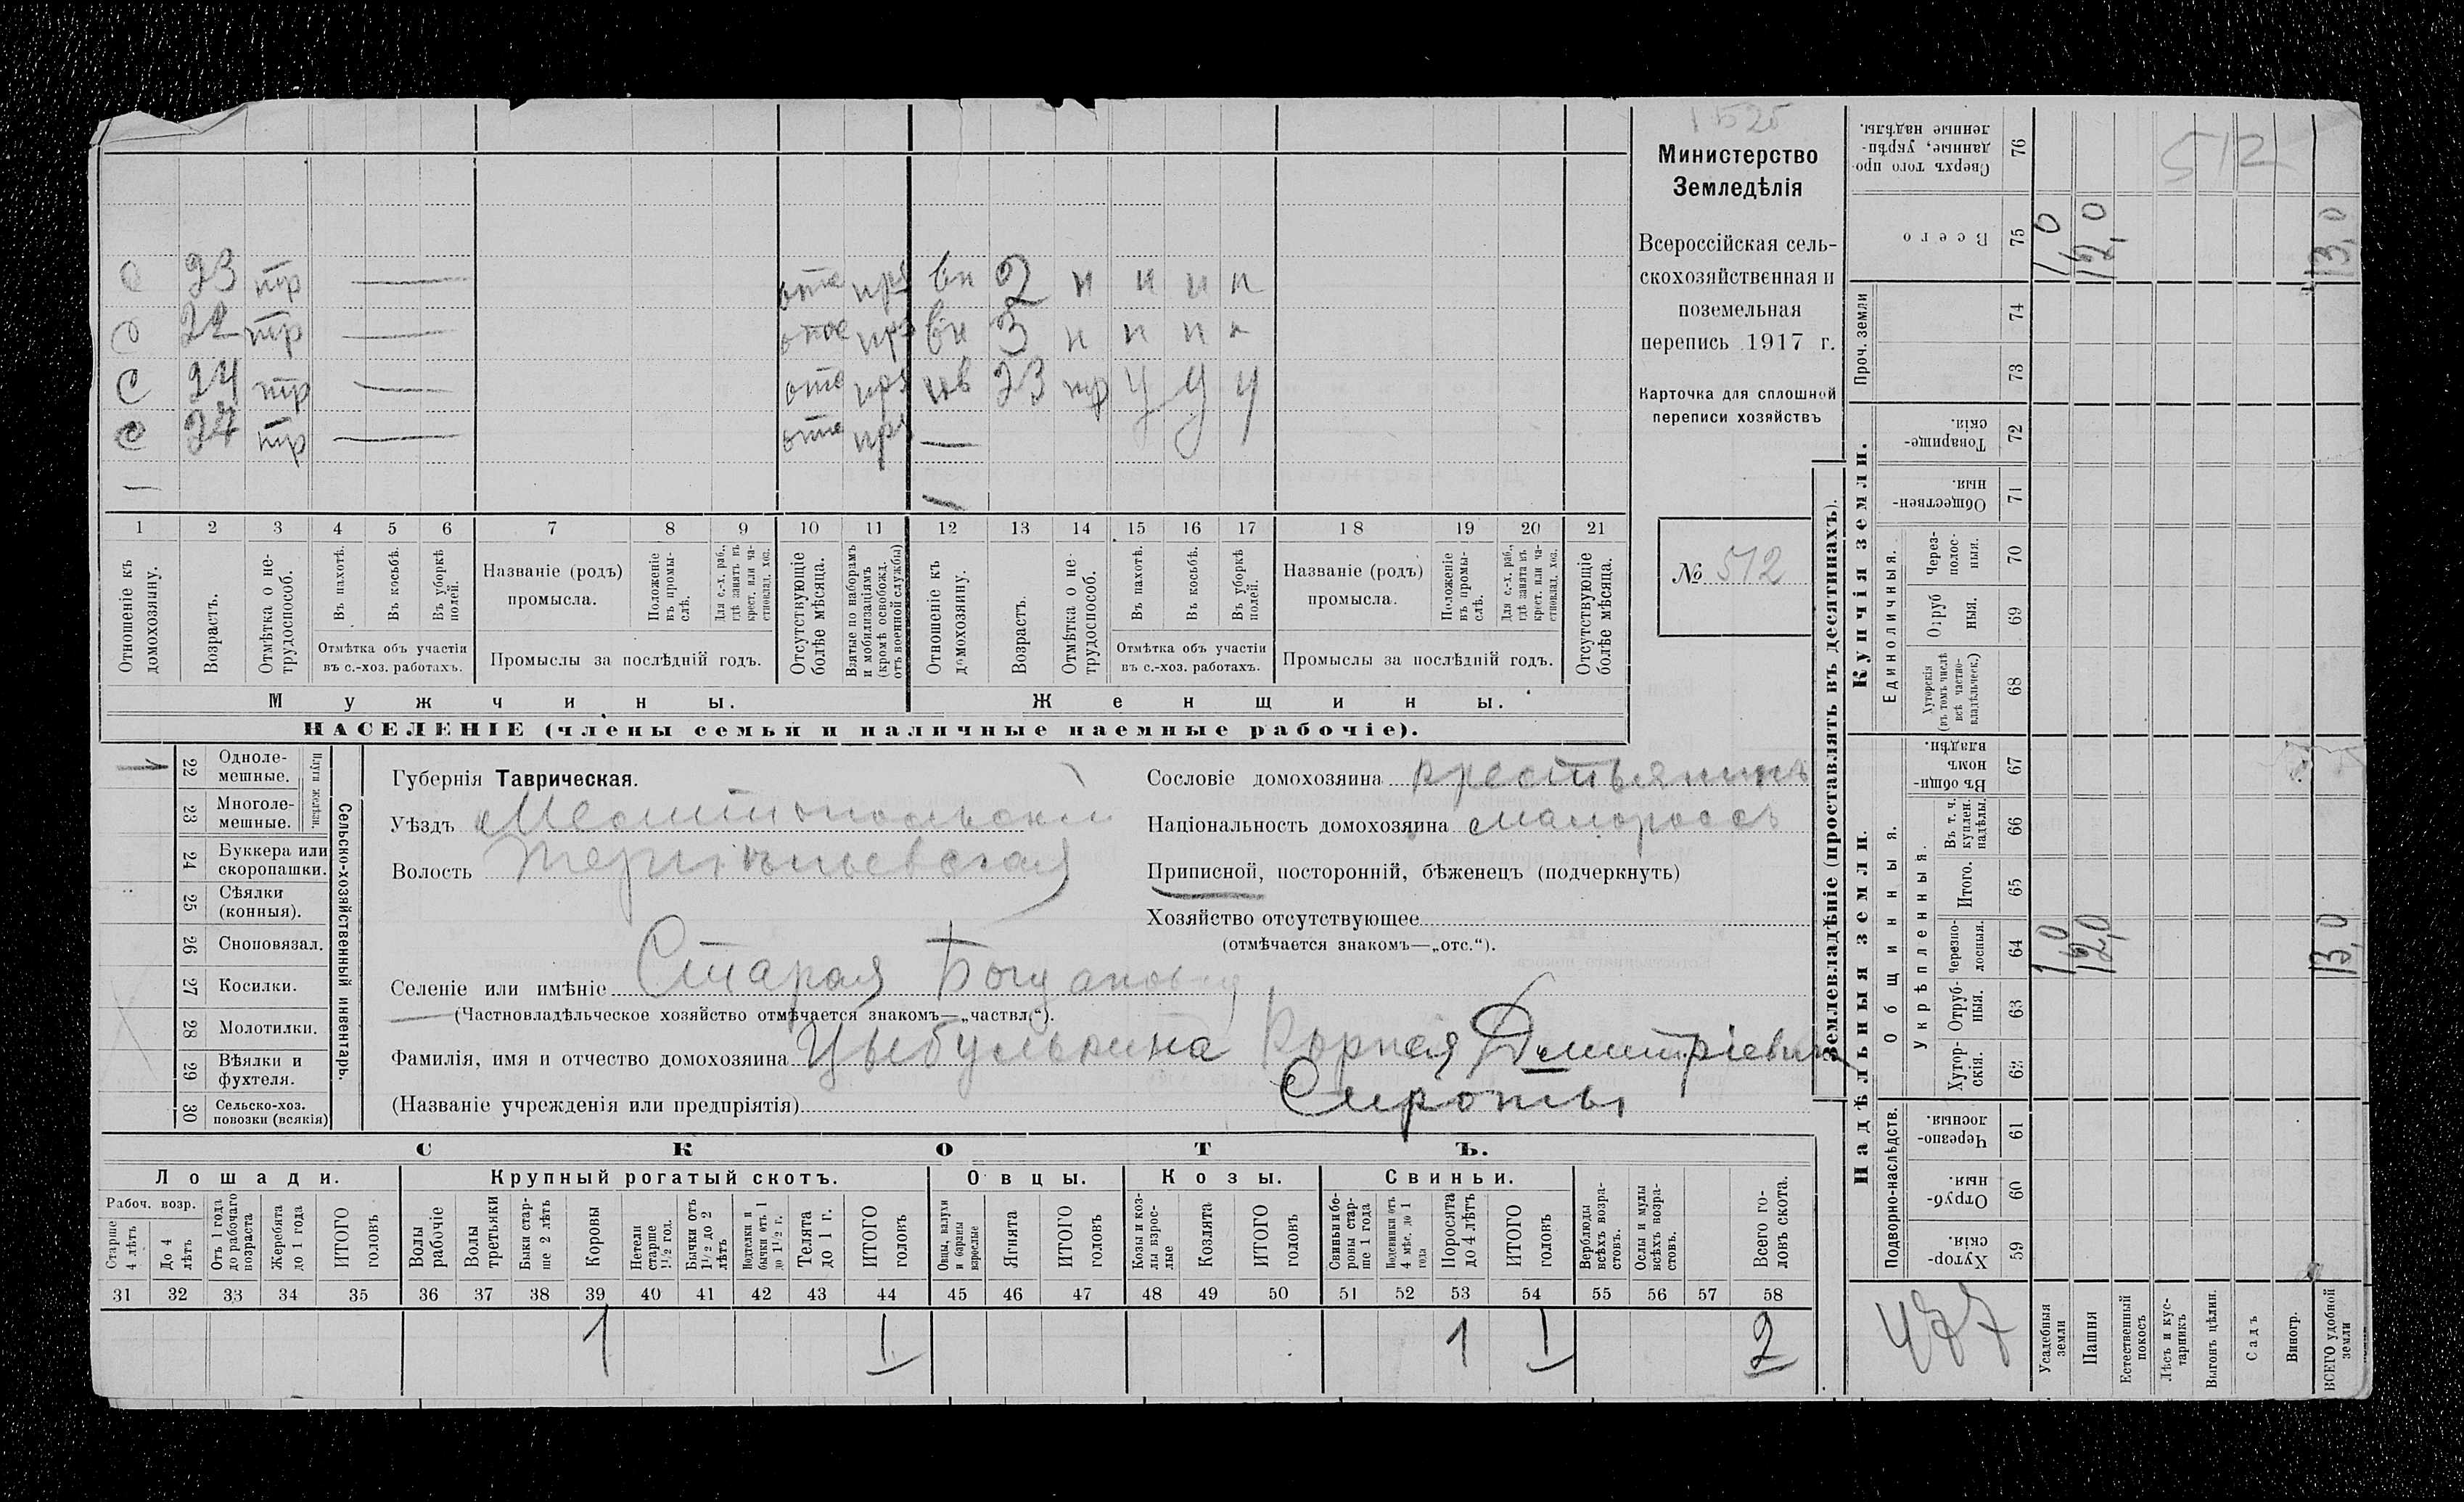 1525
Министерство
Земледѣлія
Всероссійская сель-
скохозяйственная и
поземельная
перепись 1917 г.
Карточка для сплошной
переписи хозяйствъ
№ 512
с 23 тр — отс вн 2 н н н н
с 22 тр — отс вн 3 н н н н
с 24 тр — отс нв 23 нр у у у
с 27 тр — отс —
— —
1 2 3 4 5 6 7 8 9 10 11 12 13 14 15 16 17 18 19 20 21
Отношеніе къ домохозяину.
Возрастъ.
Отмѣтка о не-трудоспособ.
Въ пахотѣ.
Въ косьбѣ.
Въ уборкѣ полей.
Отмѣтка объ участіи
въ с.-хоз. работахъ.
Названіе (родъ)
промысла.
Положеніе въ промы-слѣ.
Для с.-х. раб., гдѣ занятъ въ крест. или ча-стновлад. хоз.
Промыслы за послѣдній годъ.
Отсутствующіе болѣе мѣсяца.
Взятые по наборамъ и мобилизаціямъ (кромѣ освобожд. отъ военной службы)
Отношеніе къ домохозяину.
Возрастъ.
Отмѣтка о не-трудоспособ.
Въ пахотѣ.
Въ косьбѣ.
Въ уборкѣ полей.
Отмѣтка объ участіи
въ с.-хоз. работахъ.
Названіе (родъ)
промысла.
Положеніе въ промы-слѣ.
Для с.-х. раб., гдѣ занята въ крест. или ча-стновлад. хоз.
Промыслы за послѣдній годъ.
Отсутствующіе болѣе мѣсяца.
Мужчины. Женщины.
НАСЕЛЕНІЕ (члены семьи и наличные наемные рабочіе).
Сельско-хозяйственный инвентарь.
Плуги желѣзн.
22 Одноле-мешные.
23 Многоле-мешные.
24 Буккера или скоропашки.
25 Сѣялки (конныя).
26 Сноповязал.
27 Косилки.
28 Молотилки.
29 Вѣялки и фухтеля.
30 Сельско-хоз. повозки (всякія)
Губернія Таврическая.
Уѣздъ Мелитопольскій
Волость
Селеніе или имѣніе Старая Богдановка
(Частновладѣльческое хозяйство отмѣчается знакомъ—„частвл.“).
Фамилія, имя и отчество домохозяина Цыбулькина Корнея Дмитріевича
(Названіе учрежденія или предпріятія) Сироты
Сословіе домохозяина крестьянинъ
Національность домохозяина малороссъ
Приписной, посторонній, бѣженецъ (подчеркнуть)
Хозяйство отсутствующее
(отмѣчается знакомъ—„отс.“).
СКОТЪ.
Лошади. Крупный рогатый скотъ. Овцы. Козы. Свиньи.
Рабоч. возр.
Старше 4 лѣтъ
До 4 лѣтъ
Отъ 1 года до рабочаго возраста
Жеребята до 1 года
ИТОГО головъ
Волы рабочіе
Волы третьяки
Быки стар-ше 2 лѣтъ
Коровы
Нетели старше 1½ год.
Бычки отъ 1½ до 2 лѣтъ
Подтелки и бычки отъ 1 до 1½ г.
Телята до 1 г.
ИТОГО головъ
Овцы, валухи и бараны взрослые
Ягнята
ИТОГО головъ
Козы и коз-лы взрос-лые
Козлята
ИТОГО головъ
Свиньи и бо-ровы стар-ше 1 года
Подсвинки отъ 4 мѣс. до 1 года
Поросята до 4 лѣтъ
ИТОГО головъ
Верблюды всѣхъ возра-стовъ.
Ослы и мулы всѣхъ возра-стовъ.
Всего го-ловъ скота.
31 32 33 34 35 36 37 38 39 40 41 42 43 44 45 46 47 48 49 50 51 52 53 54 55 56 57 58
1 1 1 1 2
Землевладѣніе (проставлять въ десятинахъ).
Надѣльныя земли. Купчія земли. Проч. земли
Подворно-наслѣдств.
Общинныя.
Укрѣпленныя.
Единоличныя.
Хутор-скія. 59
Отруб-ныя. 60
Черезпо-лосныя. 61
Хутор-скія. 62
Отруб-ныя. 63
Черезпо-лосныя. 64
Итого. 65
Въ т. ч. куплен. надѣлы. 66
Въ общин-номъ владѣн. 67
Хуторскія (въ томъ числѣ всѣ частно-владѣльческ.) 68
Отруб ныя. 69
Через-полос-ныя. 70
Обществен-ныя. 71
Товарище-скія. 72
73
74
Всего 75
Сверхъ того про-данные, укрѣп-ленные надѣлы. 76
Усадебныя земли 1,0 1,0
Пашня 12,0 12,0
Естественный покосъ
Лѣсъ и кус-тарникъ
Выгонъ цѣлин.
Садъ
Виногр.
ВСЕГО удобной земли 13,0 13,0
512
477